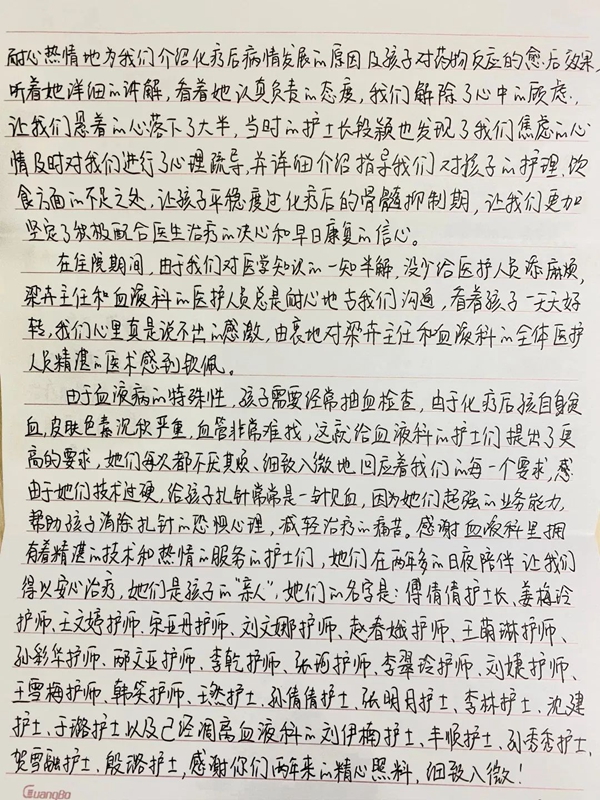 耐心热情地为我们介绍化疗后病情发展的原因及孩子对药物反应的愈后效果,
听着她详细的讲解,看着她认真负责的态度,我们解除了心中的顾虑,
让我们悬着的心落下了大半,当时的护士长段颖也发现了我们焦虑的心
情及时对我们进行了心理疏导,并详细介绍指导我们对孩子的护理、饮
食方面的不足之处,让孩子平稳度过化疗后的骨髓抑制期,让我们更加
坚定了积极配合医生治疗的决心和早日康复的信心。
在住院期间,由于我们对医学知识的一知半解,没少给医护人员添麻烦,
梁卉主任和血液科的医护人员总是耐心地去我们沟通,看着孩子一天天好
转,我们心里真是说不出的感激,由衷地对梁卉主任和血液科的全体医护
人员精湛的医术感到钦佩。
由于血液病的特殊性,孩子需要经常抽血检查,由于化疗后孩自身贫
血,皮肤色素沉积严重,血管非常难找,这就给血液科的护士们提出了更
高的要求,她们每次都不厌其烦、细致入微地回应着我们的每一个要求,感
由于她们技术过硬,给孩子扎针常常是一针见血,因为她们超强的业务能力,
帮助孩子消除扎针的恐惧心理,减轻治疗的痛苦。感谢血液科里拥
有着精湛的技术和热情的服务的护士们,她们在两年多的日夜陪伴让我们
得以安心治疗,她们是孩子的“亲人”,她们的名字是:傅倩倩护士长、姜梅玲
护师、王文婷护师、宋亚丹护师、刘文娜护师、赵春娥护师、王萌琳护师、
孙彩华护师、邴文亚护师、李乾护师、张河护师、李翠玲护师、刘婕护师、
王雪梅护师、韩笑护师、王然护士、孙倩倩护士、张明月护士、李林护士、沈建
护士、于璐护士以及已经调离血液科的刘伊楠护士、丰顺护士、孙秀秀护士、
贺雪融护士、殷璐护士,感谢你们两年来的精心照料,细致入微!
GuangBo